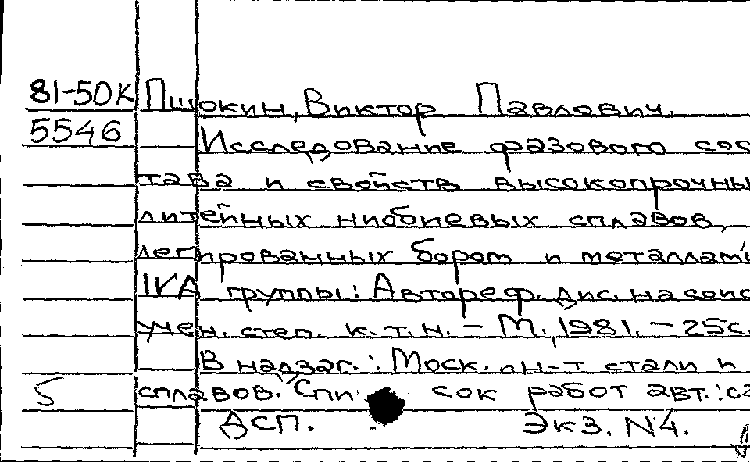 81-50К Пшокин, Виктор Павлович.
5546 Исследование фазового сос
тава и свойств высокопрочны
литейных ниобиевых сплавов,
легированных бором и металлами
IVA группы: Автореф. дис. на соис
учен. степ. к.т.н. – М., 1981. – 25с.
В надзаг.: Моск. ин-т стали и
5 сплавов. Спи сок работ авт.: с
ДСП. Экз. N4.